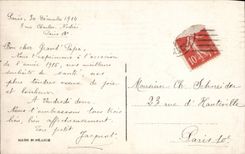 Paris, 30 Décembre 1914
Paris
Bon cher Grand Papa,
Nous t'exprimons à l'occasion
de l'année 1915, nos meilleurs
souhaits de santé, nos
plus tendres vœux de joie
et bonheur.
A Vendredi donc.
Nous t'embrassons tous trois
bien affectueusement.
Ton petit
Jacquot.
Monsieur Ch. Schneider
23 rue d'Hauteville
Paris 10e
10